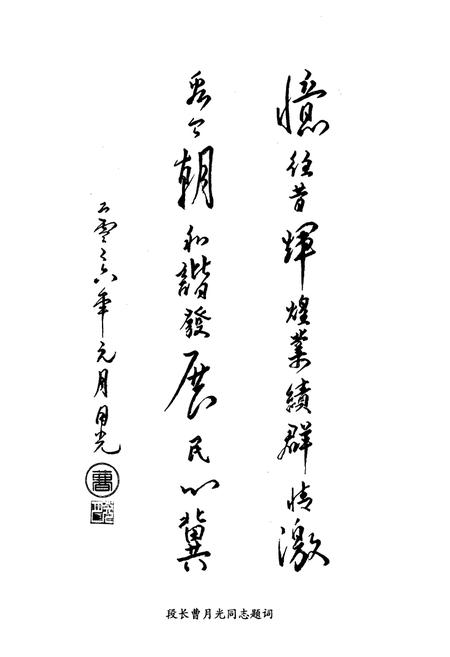 憶往昔輝煌業績群情激
看今朝和諧發展民心冀
二零々六年元月月光
曹
段长曹月光同志题词